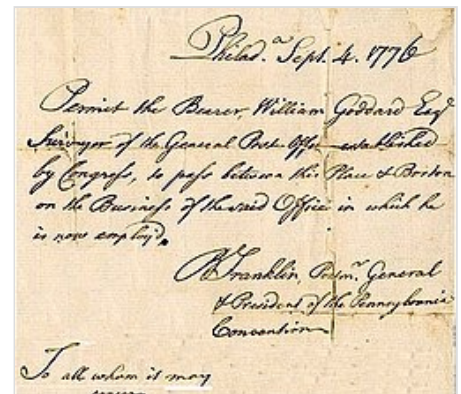 Philad.ª Sept. 4. 1776
Permit the Bearer, William Goddard Esqʳ
Surveyor of the General Post Office established
by Congress, to pass between this Place & Boston
on the Business of the said Office in which he
is now employ'd.
B Franklin, Posmʳ. General
& President of the Pennsylvania
Convention
To all whom it may